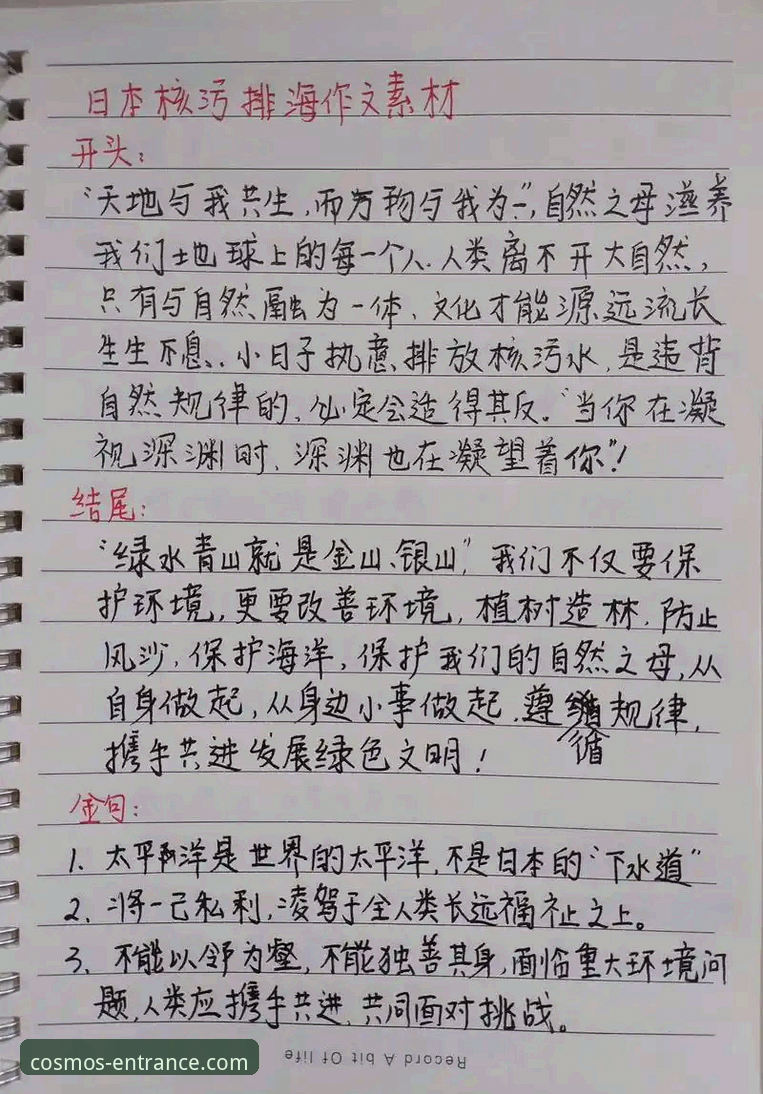 日本核污排海作文素材
开头:
"天地与我共生,而万物与我为一",自然之母滋养
我们地球上的每一个人.人类离不开大自然,
只有与自然融为一体,文化才能源远流长
生生不息,.小日子执意排放核污水,是违背
自然规律的,必定会适得其反。"当你在凝
视深渊时,深渊也在凝望着你"!
结尾:
"绿水青山就是金山、银山",我们不仅要保
护环境,更要改善环境,植树造林.防止
风沙,保护海洋,保护我们的自然之母,从
自身做起,从身边小事做起.遵循规律,
携手共进发展绿色文明!
金句:
1. 太平洋是世界的太平洋,不是日本的"下水道"
2. 将一己私利,凌驾于全人类长远福祉之上。
3. 不能以邻为壑,不能独善其身,面临重大环境问
题,人类应携手共进,共同面对挑战。
Record A bit Of life
cosmos-entrance.com